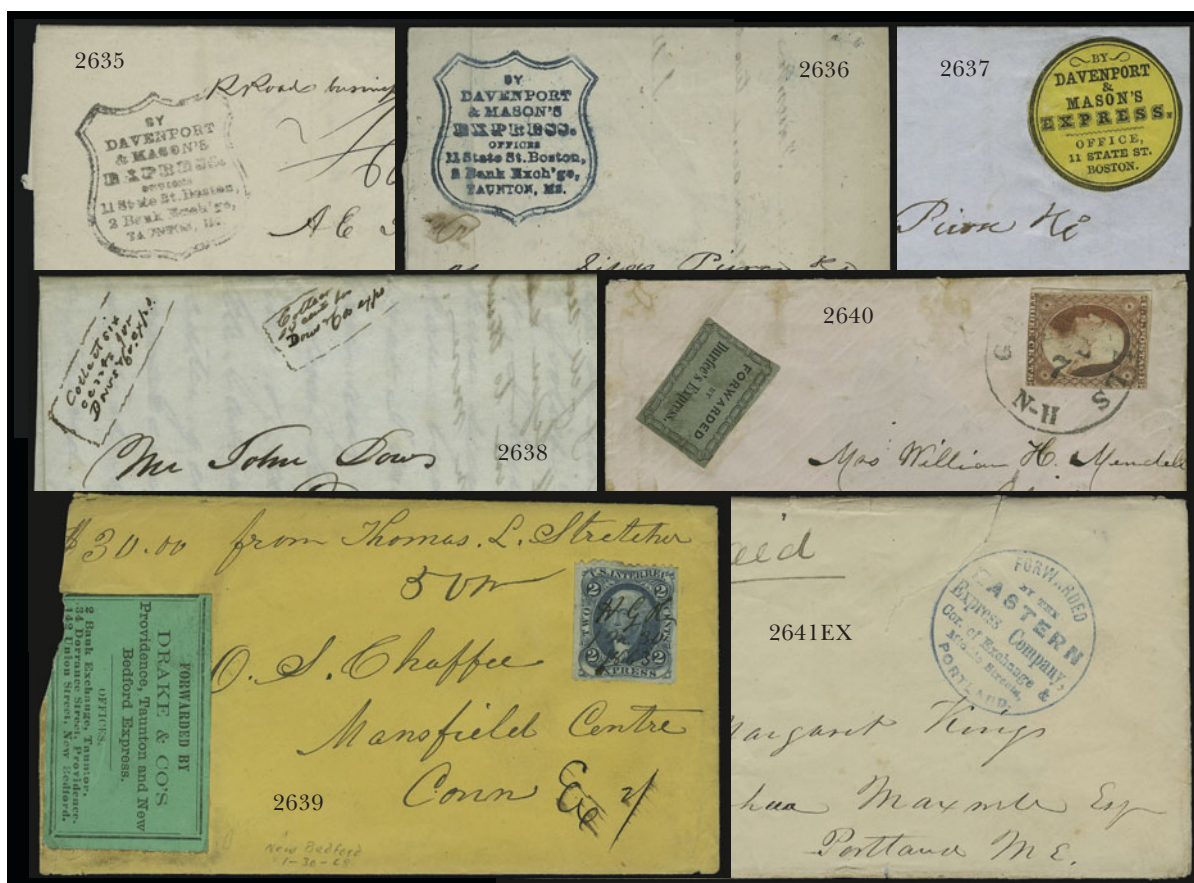 2635
R Road
BY
DAVENPORT
& MASON'S
EXPRESS.
OFFICES
11 State St. Boston,
2 Bank Exch'ge,
TAUNTON, Ms.
2636
BY
DAVENPORT
& MASON'S
EXPRESS.
OFFICES
11 State St. Boston,
2 Bank Exch'ge,
TAUNTON, MS.
2637
BY
DAVENPORT
&
MASON'S
EXPRESS.
OFFICE,
11 STATE ST.
BOSTON.
Collect six
cents for
2638
Mr John Dows
2640
FORWARDED
BY
Durfee's Express.
N-H
Mrs William H. Mendell
$30.00 from Thomas. L. Stretcher
U.S. INTER REV
2 2
TWO CENTS
2 2
EXPRESS
O. S. Chaffee
Mansfield Centre
Conn
2639
New Bedford
FORWARDED BY
DRAKE & CO'S
Providence, Taunton and New
Bedford Express.
OFFICES.
2 Bank Exchange, Taunton.
34 Dorrance Street, Providence.
142 Union Street, New Bedford.
2641EX
FORWARDED
BY THE
EASTERN
Express Company,
Cor. of Exchange &
Middle Streets,
PORTLAND.
Margaret Kings
Portland ME.